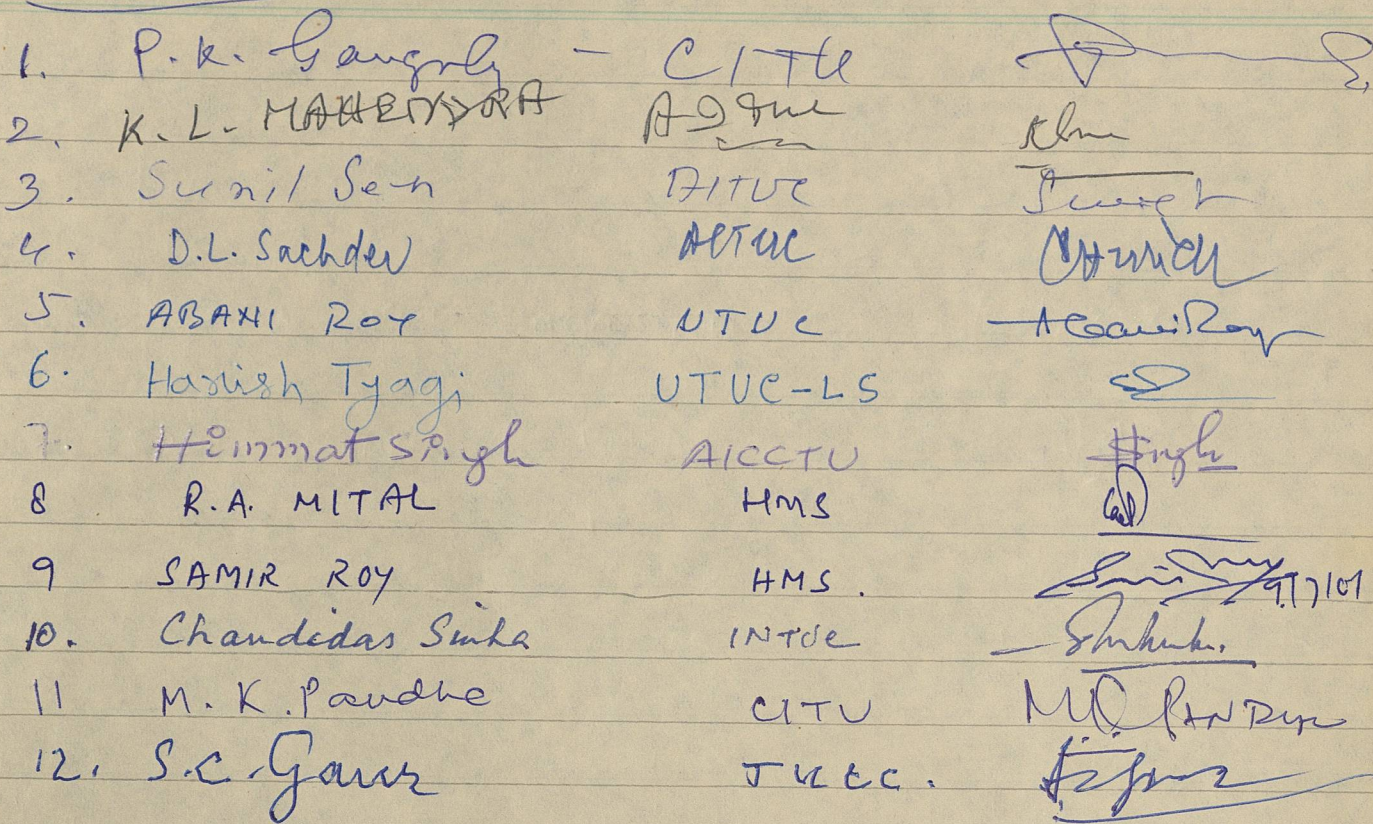 1. P.K. Ganguly - CITU
2. K.L. MAHENDRA AITUC
3. Sunil Sen AITUC
4. D.L. Sachdev AITUC
5. ABANI ROY UTUC Abani Roy
6. Harish Tyagi UTUC-LS
7. Himmat Singh AICCTU HSingh
8 R.A. MITAL HMS
9 SAMIR ROY HMS. 9/7/01
10. Chandidas Sinha INTUC
11 M.K. Pandhe CITU MK PANDHE
12. S.C. Gaur